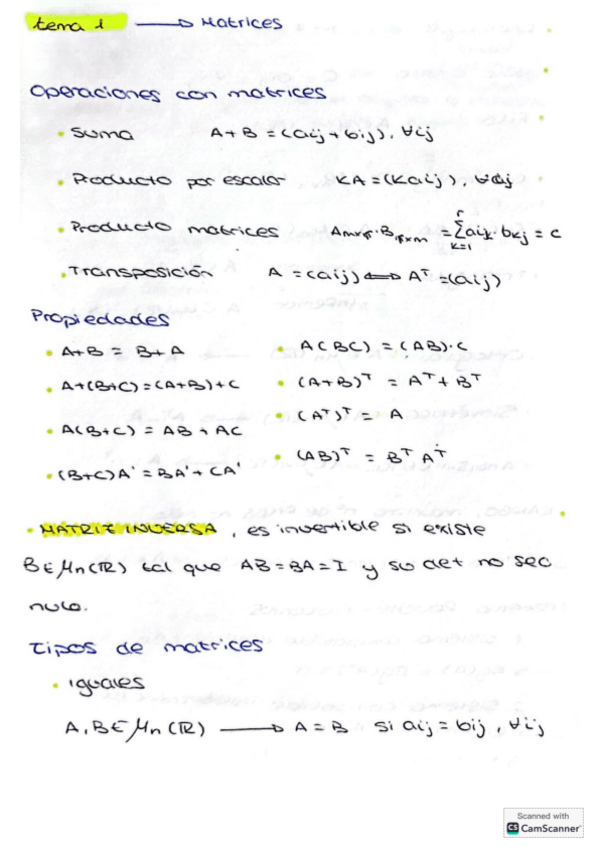 tema 1 → Matrices
Operaciones con matrices
• Suma A+B = (aij + bij), ∀ij
• Producto por escalar KA = (Kaij), ∀ij
• Producto matrices Anxr · Brxm = Σ aik · bkj = C
r
k=1
• Transposición A = (aij) ⟷ Aᵀ = (aij)
Propiedades
• A+B = B+A
• A+(B+C) = (A+B)+C
• A(B+C) = AB + AC
• (B+C)A' = BA' + CA'
• A(BC) = (AB)·C
• (A+B)ᵀ = Aᵀ + Bᵀ
• (Aᵀ)ᵀ = A
• (AB)ᵀ = Bᵀ Aᵀ
• MATRIZ INVERSA, es invertible si existe
B∈Mn(ℝ) tal que AB = BA = I y su det no sea
nulo.
Tipos de matrices
• iguales
A, B ∈ Mn(ℝ) → A = B si aij = bij, ∀ij
Scanned with
CS CamScanner